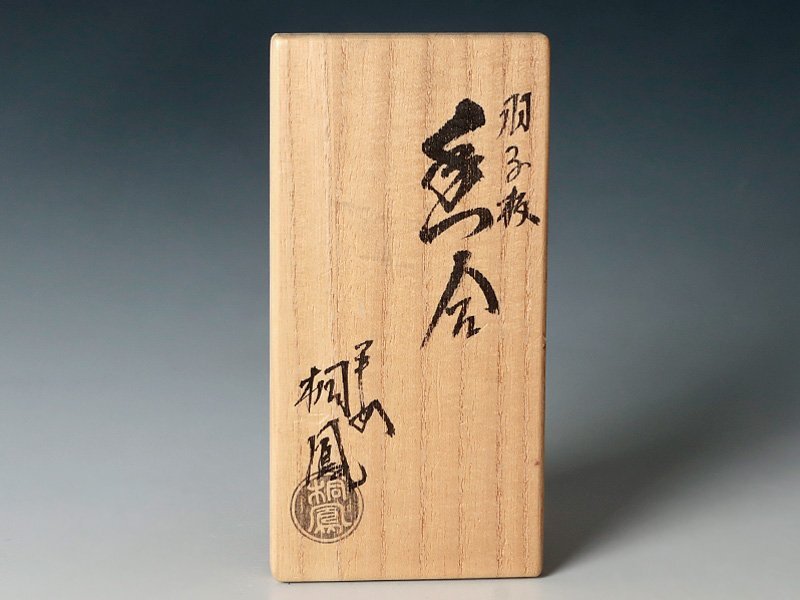 羽子板
香合
平安
桐鳳
桐鳳